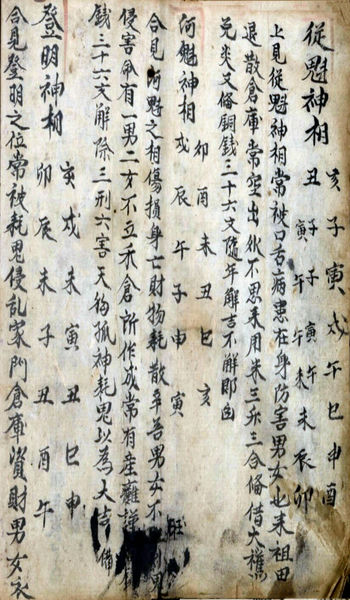 從魁神相
亥子寅戌午巳申酉
上見從魁神相常被口舌病患在身伤害男女也未祖田
退散倉庫常空出外不思來用米三升三合俻借大
又俻銅錢三十六文隨年解吉不解即凶
河魁神相
卯酉未丑巳亥
戌辰午子申寅
合見河魁之相傷損身亡財物耗散辛苦男女不鬼
侵害命有一男二女不立禾倉所作或常有産难
錢三十六文解除三刑六害天狗孤神耗鬼以為大吉俻
登明神相
亥戌未寅丑巳申
卯辰未子丑酉午
合見登明之位常被耗鬼侵乱家門倉庫資財男女衣